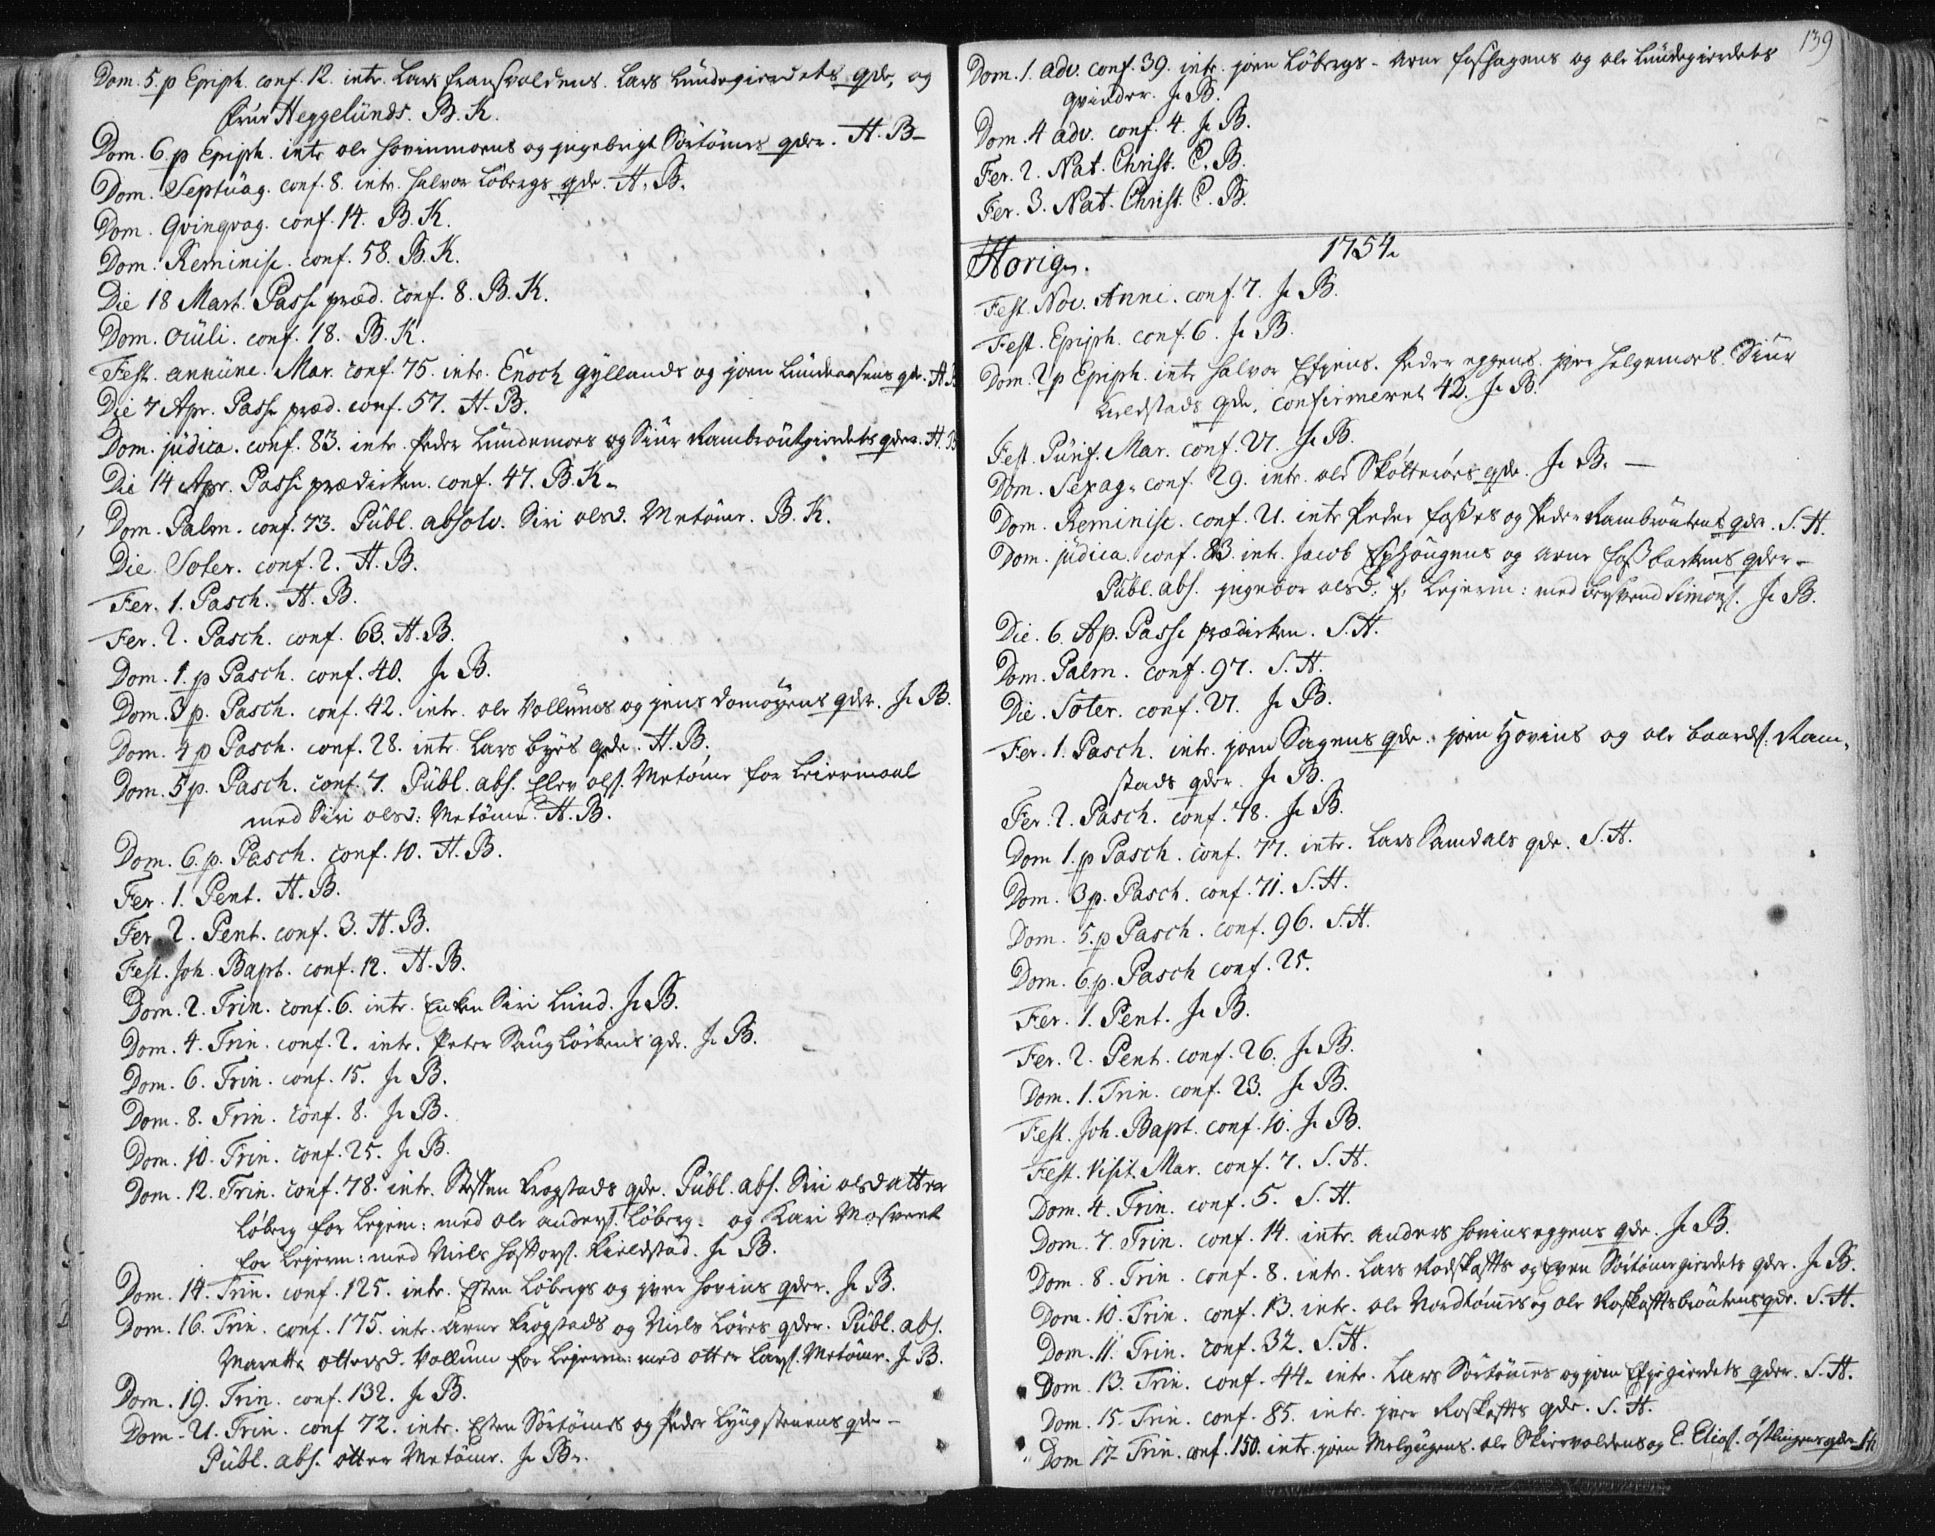 Dom. 5. p Epiph. conf. 12. intr. Lars Fransvoldens. Lars Lündegierdets qde, og
Frue Heggelünds. B. K.
Dom. 6. p Epiph. intr. ole Hovinmoens og jngebrigt Sörtömes qder. H. B.
Dom. Septüag. conf. 8. intr. Halvor Löbergs qde. H. B.
Dom. Qvinqvag. conf. 14. B. K.
Dom. Reminisc. conf. 58. B. K.
Die 18 Mart. Pass. præd. conf. 8. B. K.
Dom. Oculi. conf. 18. B. K.
Fest. Annunc. Mar. conf. 75. intr. Enoch Gyllands og joen Lündaasens qdr. H. B.
Die 7 Apr. Pass. præd. conf. 57. H. B.
Dom. jüdica. conf. 83. intr. Peder Lündemoes og Siur Rambroütgierdets qder. H. B.
Die 14 Apr. Passi prædicken. conf. 47. B. K.
Dom. Palm. conf. 73. Pübl. absolv. Siri olsd. Metömr. B. K.
Die. Soter. conf. 2. H. B.
Fer. 1. Pasch. H. B.
Fer. 2. Pasch. conf. 63. H. B.
Dom. 1. p Pasch. conf. 40. J. B.
Dom. 3 p. Pasch. conf. 42. intr. ole Vollums og jens Domöyens qder. J. B.
Dom. 4 p Pasch. conf. 28. intr. Lars Byes qde. H. B.
Dom. 5 p. Pasch. conf. 7. Pübl. abs. Elev ols. Metömr for Leiermaal
med Siri olsd: Metömr. H. B.
Dom. 6. p. Pasch. conf. 10. H. B.
Fer. 1. Pent. H. B.
Fer. 2. Pent. conf. 3. H. B.
Fest. Joh. Bapt. conf. 12. H. B.
Dom. 2. Trin. conf. 6. intr. Enken Siri Lünd. J. B.
Dom. 4. Trin. conf. 2. intr. Peter Saugløckens qde. J. B.
Dom. 6. Trin. conf. 15. J. B.
Dom. 8. Trin. conf. 8. J. B.
Dom. 10. Trin. conf. 25. J. B.
Dom. 12. Trin. conf. 78. intr. Steffen Krogstads qde. Pübl. abs. Siri olsdatter
Löberg for Lejerm: med ole anders. Löberg. og Kari Mosvent
for Lejerm: med Niels kieldstad. J. B.
Dom. 14. Trin. conf. 125. intr. Esten Löbergs og jver Hovins qder. J. B.
Dom. 16. Trin. conf. 175. intr. Arne Krogstads og Niels Löres qder. Pübl. abs.
Marette ottersd. Vollum for Lejerm: med otter Lars. Metömr. J. B.
Dom. 19. Trin. conf. 132. J. B.
Dom. 21. Trin. conf 72. intr. Esten Sörtömes og Peder Lyngstenens qde
Pübl. abs. otter Metömr. J. B.
139
Dom. 1. adv. conf. 39. intr. joen Löbergs. Arne Foshagens og ole Lündegierdets
qvinder. J. B.
Dom. 4 adv. conf. 4. J. B.
Fer. 2. Nat. Christ. C. B.
Fer. 3. Nat. Christ. C. B.
Horig. 1754.
Fest. Nov. Anni. conf. 7. J. B.
Fest. Epiph. conf. 6. J. B.
Dom. 2 p Epiph. intr Halvor Efjens. Peder eggens. jver Helgemoes. Siur
kieldstads qde. confirmeret 42. J. B.
Fest. Pürif. Mar. conf. 21. J. B.
Dom. Sexag. conf. 29. intr. ole Skötnöes qde. J. B.
Dom. Reminisc. conf. 21. intr Peder Foshes og Peder Rambroütens qder. S. H.
Dom. jüdica. conf. 83. intr. Jacob Esphougens og Arne Fosbackens qder.
Pübl. abs. jngebor olsd: f. Lejerm: med Simons. J. B.
Die. 6. Ap. Passi prædicken. S. H.
Dom. Palm. conf. 97. S. H.
Die. Soter. conf. 21. J. B.
Fer. 1. Pasch. intr. joen Sagens qde. joen Hovins og ole baards. Ram-
stads qder. J. B.
Fer. 2. Pasch. conf. 78. J. B.
Dom 1. p Pasch. conf. 77. intr. Lars Samdals qde. S. H.
Dom. 3 p. Pasch. conf. 71. S. H.
Dom. 5. p Pasch. conf. 96. S. H.
Dom. 6. p. Pasch conf. 25.
Fer. 1. Pent. J. B.
Fer. 2. Pent. conf. 26. J. B.
Dom. 1. Trin. conf. 23. J. B.
Fest. Joh. Bapt. conf. 10. J. B.
Fest. Visit. Mar. conf. 7. S. H.
Dom. 4. Trin. conf. 5. S. H.
Dom. 7. Trin. conf. 14. intr. Anders Hovinseggens qde. J. B.
Dom. 8. Trin. conf. 8. intr. Lars Rodskaffts og Even Sörtömsgierdets qder. J. B.
Dom. 10. Trin. conf. 13. intr. ole Nordtömes og ole Roskafftsbroütens qde. S. H.
Dom. 11. Trin. conf. 32. S. H.
Dom. 13. Trin. conf. 44. intr. Lars Sörtömes og joen Efjegierdets qder. S. H.
Dom. 15. Trin. conf. 85. intr. jver Roskaffts qde. S. H.
Dom 17. Trin. conf. 150. intr. joen Melhugens. ole Skiervoldens og E. Elias. östlingens qder S. H.